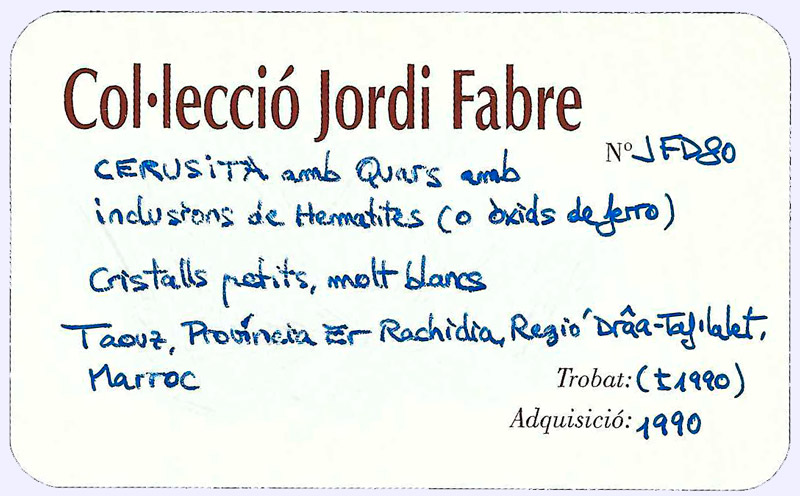 Col·lecció Jordi Fabre
Nº JFD80
CERUSITA amb Quars amb
inclusions de Hematites (o òxids de ferro)
Cristalls petits, molt blancs
Taouz, Província Er Rachidia, Regió Drâa-Tafilalet,
Marroc
Trobat: (±1990)
Adquisició: 1990